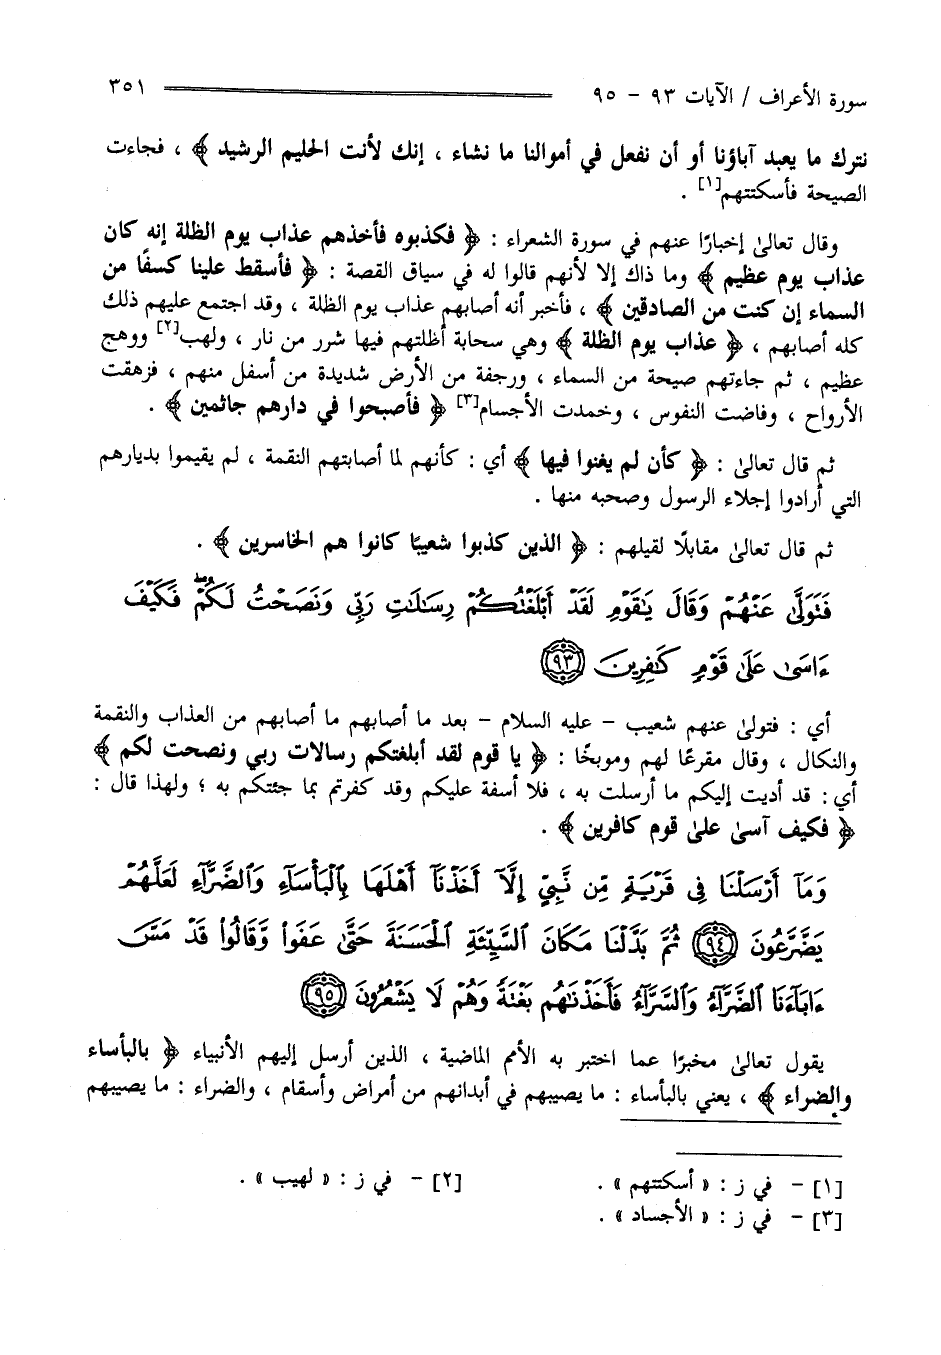 سورة الأعراف / الآيات ٩٣ - ٩٥ ٣٥١
نترك ما يعبد آباؤنا أو أن نفعل في أموالنا ما نشاء ، إنك لأنت الحليم الرشيد ﴾ ، فجاءت
الصيحة فأسكتتهم[١] .
وقال تعالىٰ إخبارًا عنهم في سورة الشعراء : ﴿ فكذبوه فأخذهم عذاب يوم الظلة إنه كان
عذاب يوم عظيم ﴾ وما ذاك إلا لأنهم قالوا له في سياق القصة : ﴿ فأسقط علينا كسفًا من
السماء إن كنت من الصادقين ﴾ ، فأخبر أنه أصابهم عذاب يوم الظلة ، وقد اجتمع عليهم ذلك
كله أصابهم ، ﴿ عذاب يوم الظلة ﴾ وهي سحابة أظلتهم فيها شرر من نار ، ولهب[٢] ووهج
عظيم ، ثم جاءتهم صيحة من السماء ، ورجفة من الأرض شديدة من أسفل منهم ، فزهقت
الأرواح ، وفاضت النفوس ، وخمدت الأجسام[٣] ﴿ فأصبحوا في دارهم جاثمين ﴾ .
ثم قال تعالىٰ : ﴿ كأن لم يغنوا فيها ﴾ أي : كأنهم لما أصابتهم النقمة ، لم يقيموا بديارهم
التي أرادوا إجلاء الرسول وصحبه منها .
ثم قال تعالىٰ مقابلًا لقيلهم : ﴿ الذين كذبوا شعيبًا كانوا هم الخاسرين ﴾ .
فَتَوَلَّىٰ عَنْهُمْ وَقَالَ يَٰقَوْمِ لَقَدْ أَبْلَغْتُكُمْ رِسَٰلَٰتِ رَبِّي وَنَصَحْتُ لَكُمْۖ فَكَيْفَ
ءَاسَىٰ عَلَىٰ قَوْمٍ كَٰفِرِينَ ٩٣
أي : فتولىٰ عنهم شعيب - عليه السلام - بعد ما أصابهم ما أصابهم من العذاب والنقمة
والنكال ، وقال مقرعًا لهم وموبخًا : ﴿ يا قوم لقد أبلغتكم رسالات ربي ونصحت لكم ﴾
أي : قد أديت إليكم ما أرسلت به ، فلا أسفة عليكم وقد كفرتم بما جئتكم به ؛ ولهذا قال :
﴿ فكيف آسىٰ علىٰ قوم كافرين ﴾ .
وَمَآ أَرْسَلْنَا فِي قَرْيَةٍ مِّن نَّبِيٍّ إِلَّآ أَخَذْنَآ أَهْلَهَا بِٱلْبَأْسَآءِ وَٱلضَّرَّآءِ لَعَلَّهُمْ
يَضَّرَّعُونَ ٩٤ ثُمَّ بَدَّلْنَا مَكَانَ ٱلسَّيِّئَةِ ٱلْحَسَنَةَ حَتَّىٰ عَفَوا۟ وَّقَالُوا۟ قَدْ مَسَّ
ءَابَآءَنَا ٱلضَّرَّآءُ وَٱلسَّرَّآءُ فَأَخَذْنَٰهُم بَغْتَةً وَهُمْ لَا يَشْعُرُونَ ٩٥
يقول تعالىٰ مخبرًا عما اختبر به الأمم الماضية ، الذين أرسل إليهم الأنبياء ﴿ بالبأساء
والضراء ﴾ ، يعني بالبأساء : ما يصيبهم في أبدانهم من أمراض وأسقام ، والضراء : ما يصيبهم
[١] - في ز : « أسكتتهم » . [٢] - في ز : « لهيب » .
[٣] - في ز : « الأجساد » .